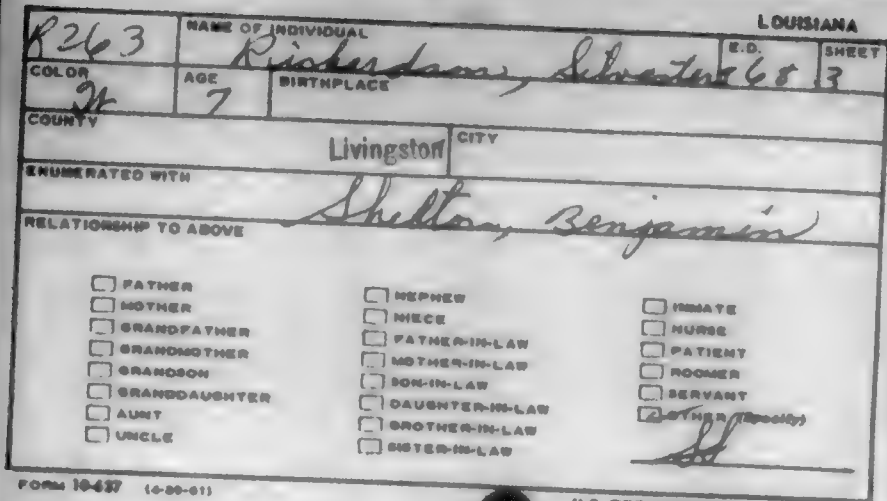 LOUISIANA
R263 NAME OF INDIVIDUAL E.D. SHEET
Silvester 68 3
COLOR AGE BIRTHPLACE
W 7
COUNTY Livingston CITY
ENUMERATED WITH
Shelton, Benjamin
RELATIONSHIP TO ABOVE
FATHER
MOTHER
GRANDFATHER
GRANDMOTHER
GRANDSON
GRANDDAUGHTER
AUNT
UNCLE
NEPHEW
NIECE
FATHER-IN-LAW
MOTHER-IN-LAW
SON-IN-LAW
DAUGHTER-IN-LAW
BROTHER-IN-LAW
SISTER-IN-LAW
INMATE
NURSE
PATIENT
ROOMER
SERVANT
OTHER (Specify)
FORM 10-637 (6-20-61)